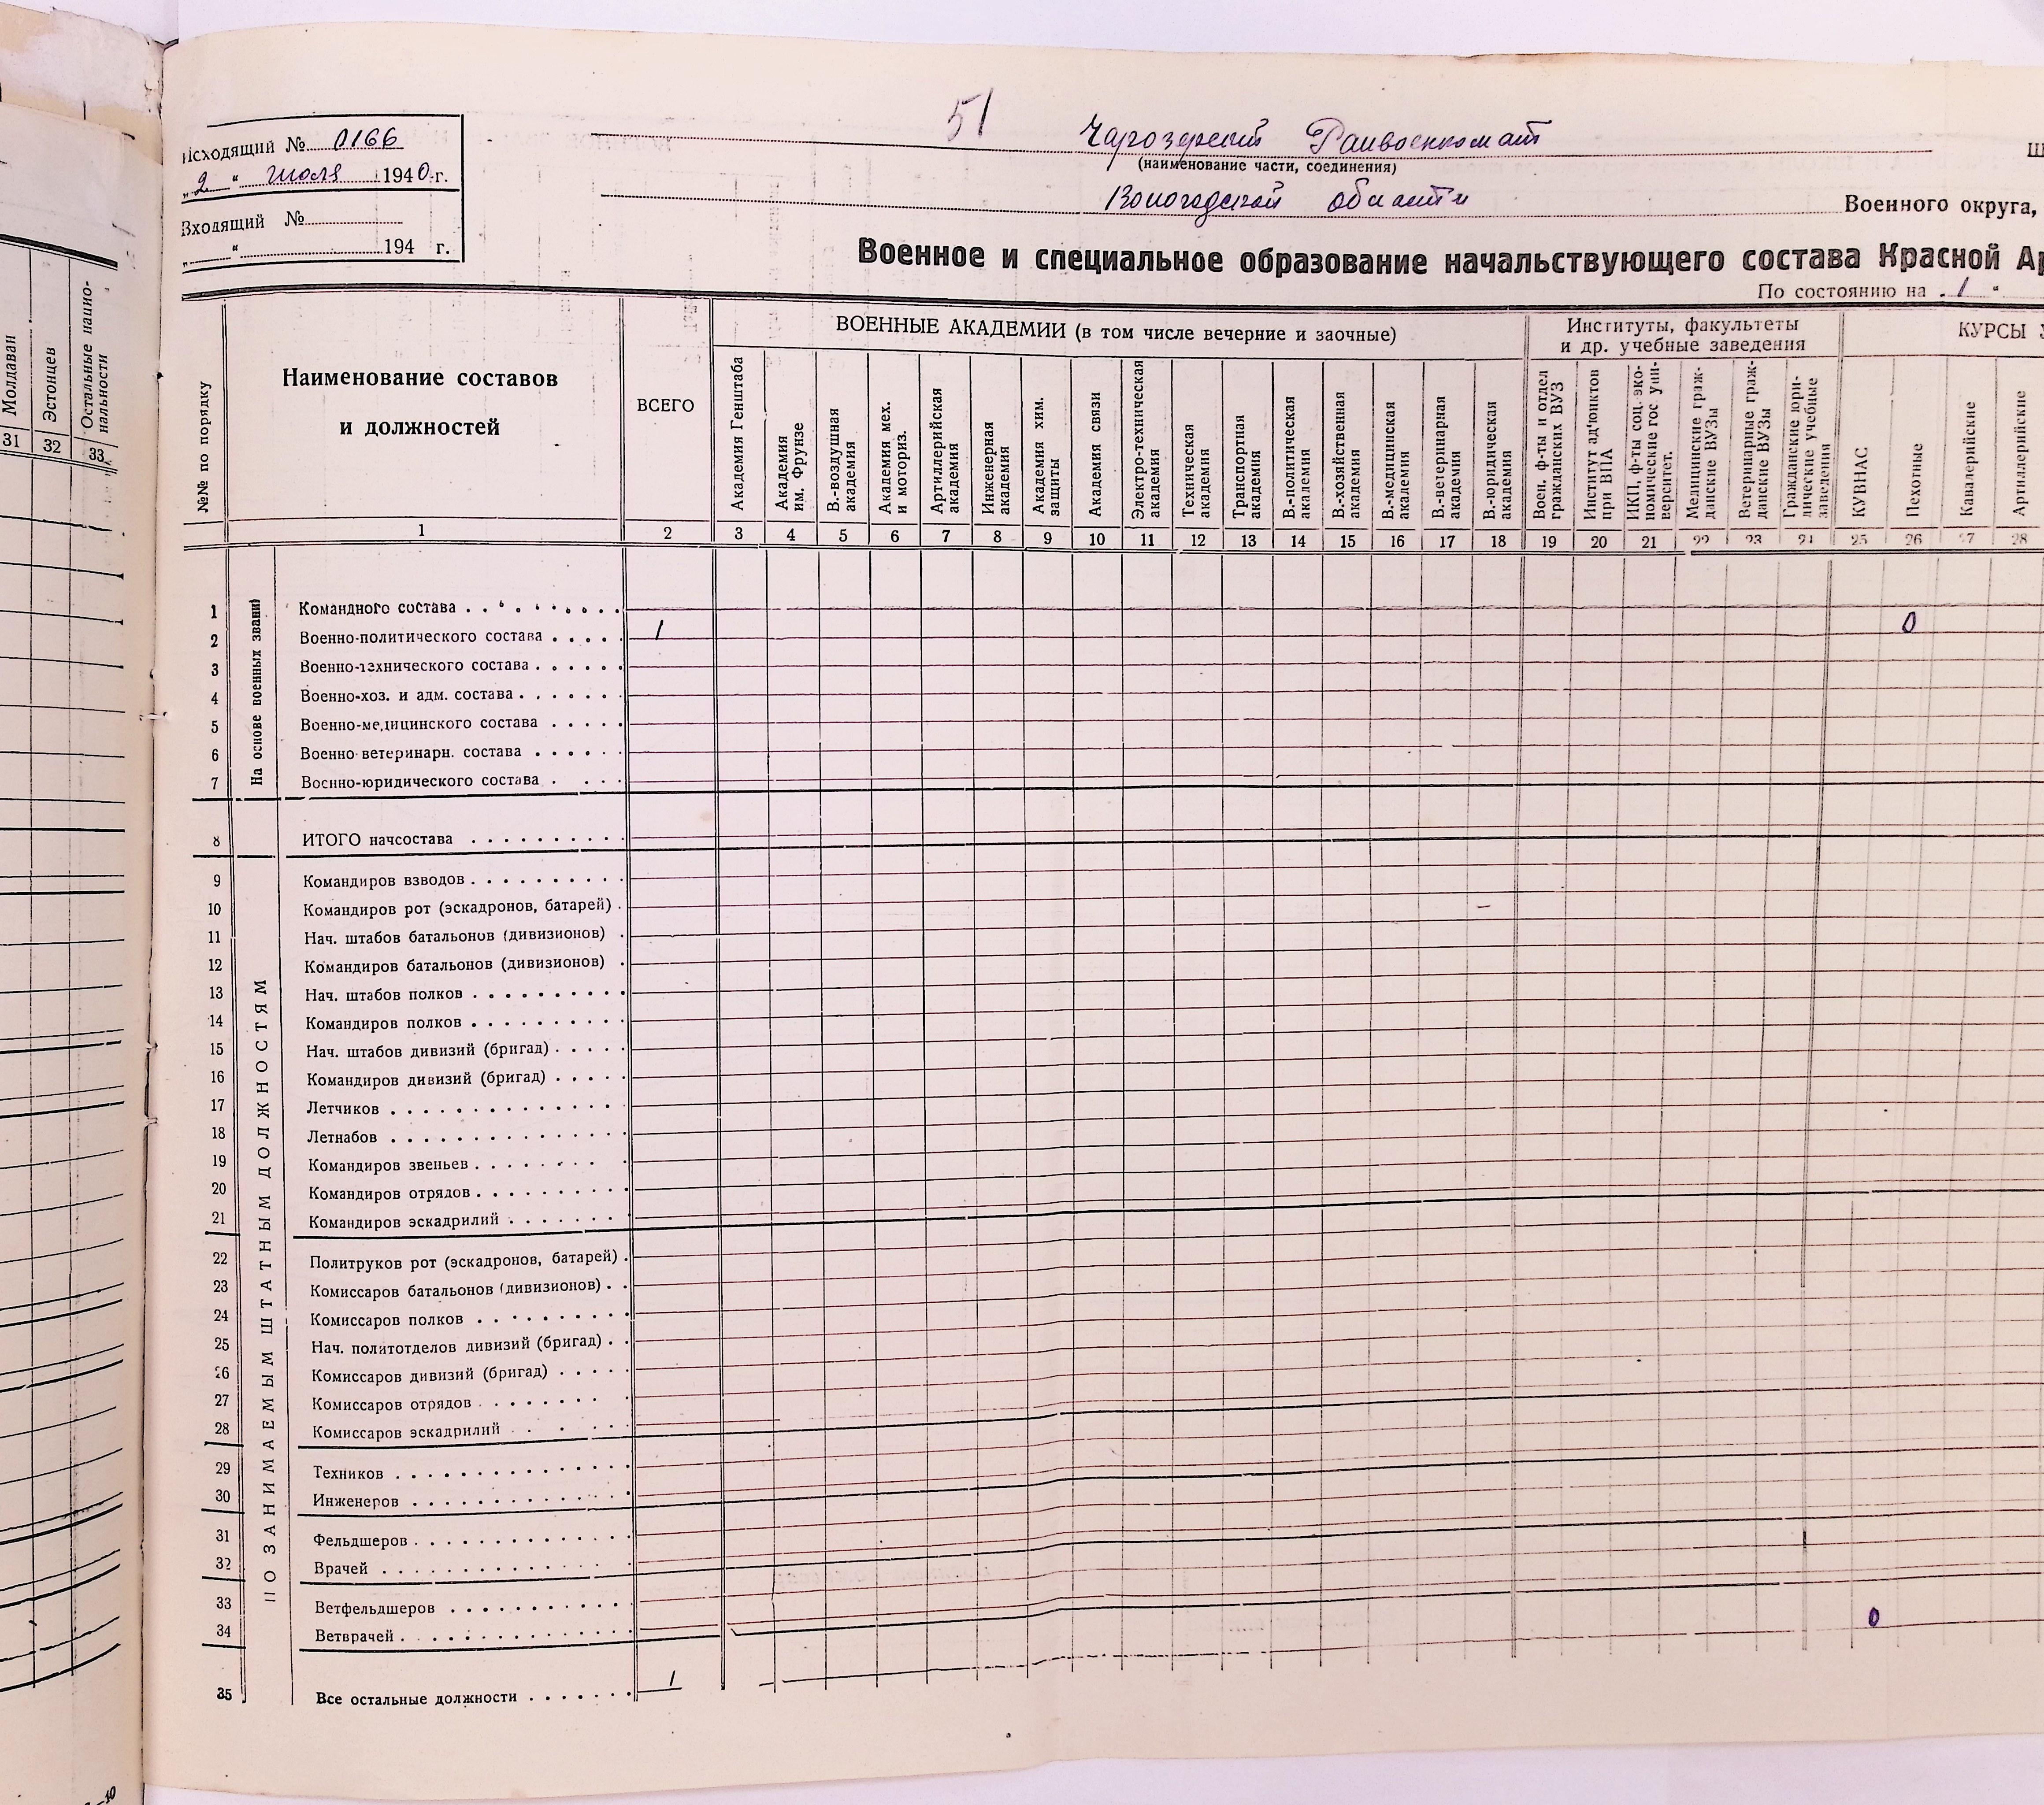 Молдаван
Эстонцев
Остальные нацио-
нальности
31 32 33
Исходящий № 0166
„2“ июля 1940 г.
Входящий №
„ “ 194 г.
51
Чарозерский Райвоенкомат
(наименование части, соединения)
Вологодской области
Военного округа,
Военное и специальное образование начальствующего состава Красной Ар
По состоянию на „1“
№№ по порядку
Наименование составов
и должностей
ВСЕГО
ВОЕННЫЕ АКАДЕМИИ (в том числе вечерние и заочные)
Институты, факультеты
и др. учебные заведения
КУРСЫ У
Академия Генштаба
Академия
им. Фрунзе
В.-воздушная
академия
Академия мех.
и моториз.
Артиллерийская
академия
Инженерная
академия
Академия хим.
защиты
Академия связи
Электро-техническая
академия
Техническая
академия
Транспортная
академия
В.-политическая
академия
В.-хозяйственная
академия
В.-медицинская
академия
В.-ветеринарная
академия
В.-юридическая
академия
Воен. ф-ты и отдел
гражданских ВУЗ
Институт ад'юнктов
при ВПА
ИКП, ф-ты соц. эко-
номические гос уни-
верситет.
Медицинские граж-
данские ВУЗы
Ветеринарные граж-
данские ВУЗы
Гражданские юри-
дические учебные
заведения
КУВНАС
Пехотные
Кавалерийские
Артиллерийские
1 2 3 4 5 6 7 8 9 10 11 12 13 14 15 16 17 18 19 20 21 22 23 24 25 26 27 28
На основе военных званий
1 Командного состава
2 Военно-политического состава 1 0
3 Военно-технического состава
4 Военно-хоз. и адм. состава
5 Военно-медицинского состава
6 Военно-ветеринарн. состава
7 Военно-юридического состава
8 ИТОГО начсостава
ПО ЗАНИМАЕМЫМ ШТАТНЫМ ДОЛЖНОСТЯМ
9 Командиров взводов
10 Командиров рот (эскадронов, батарей)
11 Нач. штабов батальонов (дивизионов)
12 Командиров батальонов (дивизионов)
13 Нач. штабов полков
14 Командиров полков
15 Нач. штабов дивизий (бригад)
16 Командиров дивизий (бригад)
17 Летчиков
18 Летнабов
19 Командиров звеньев
20 Командиров отрядов
21 Командиров эскадрилий
22 Политруков рот (эскадронов, батарей)
23 Комиссаров батальонов (дивизионов)
24 Комиссаров полков
25 Нач. политотделов дивизий (бригад)
26 Комиссаров дивизий (бригад)
27 Комиссаров отрядов
28 Комиссаров эскадрилий
29 Техников
30 Инженеров
31 Фельдшеров
32 Врачей
33 Ветфельдшеров
34 Ветврачей 0
35 Все остальные должности 1